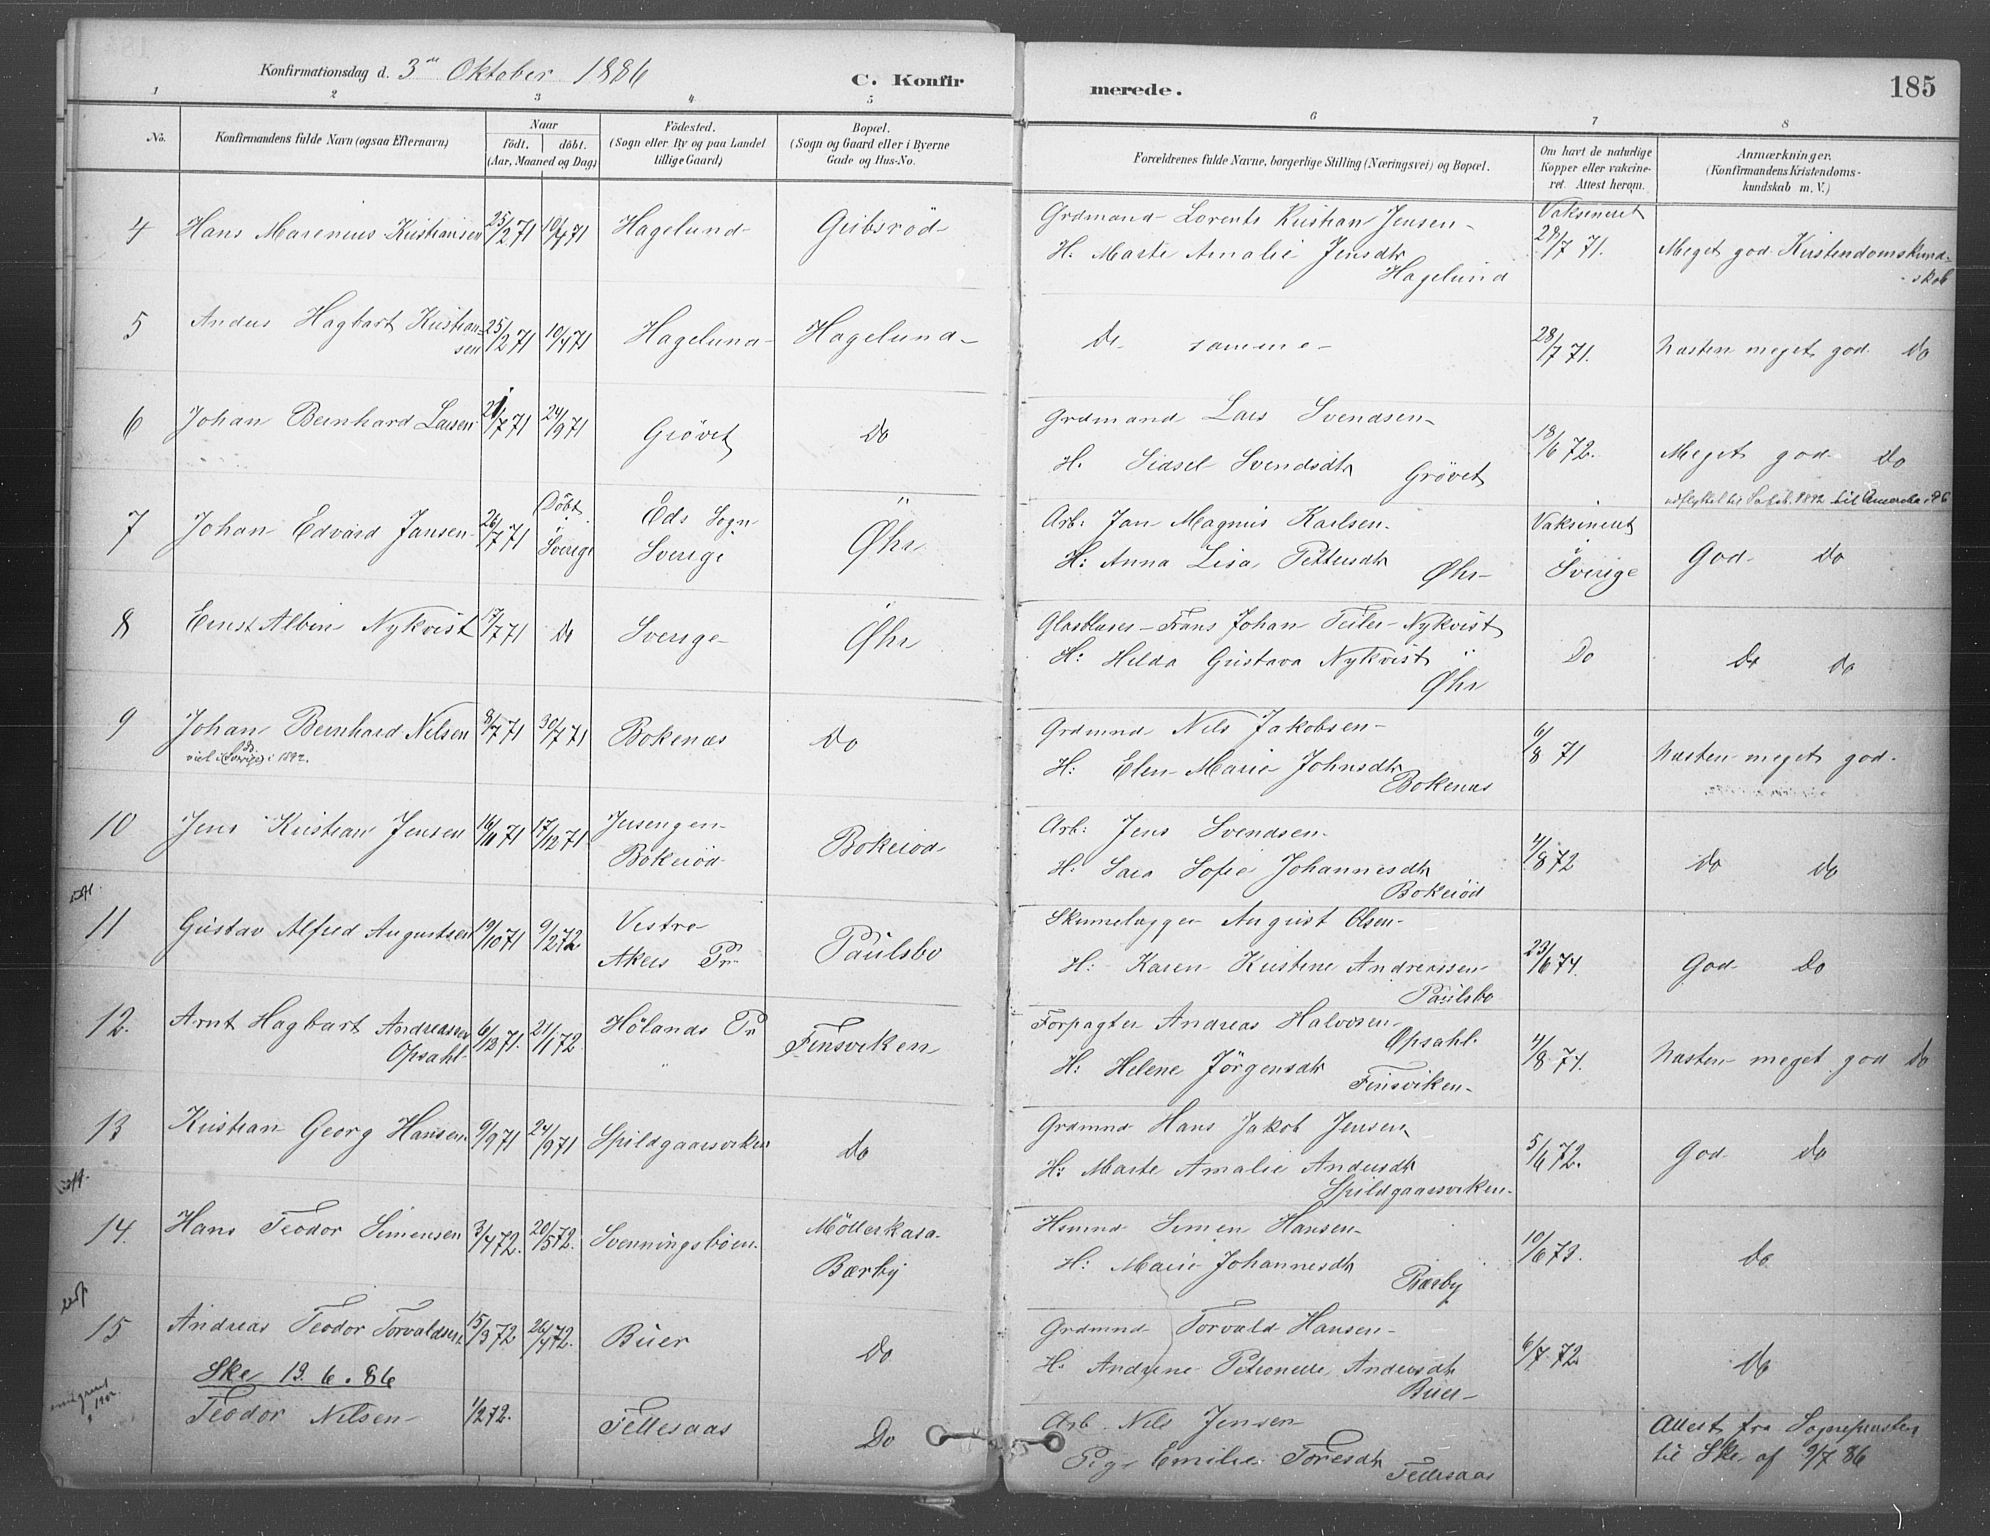 Konfirmationsdag d. 3 Oktober 1886
C. Konfirmerede.
185
1 2 3 4 5 6 7 8
No. Konfirmandens fulde Navn (ogsaa Efternavn) Naar födt. döbt. (Aar, Maaned og Dag) Födested. (Sogn eller By og paa Landet tillige Gaard) Bopæl. (Sogn og Gaard eller i Byerne Gade og Hus-No. Forældrenes fulde Navne, borgerlige Stilling (Næringsvei) og Bopæl. Om havt de naturlige Kopper eller vakcineret. Attest herom. Anmærkninger. (Konfirmandens Kristendomskundskab m. V.)
4 Hans Marenius Kristiansen 25/2 71 10/4 71 Hagelund Gribsröd Grdmand Lorents Kristian Jensen
H. Marte Amalie Jensdtr Hagelund Vaksineret 28/7 71. Meget god Kristendomskundskab
5 Anders Hagbart Kristiansen 25/2 71 10/4 71 Hagelund Hagelund De samme 28/7 71. Næsten meget god Do
6 Johan Bernhard Larsen 21/7 71 24/9 71 Grövet Do Grdmand Lars Svendsen
H. Sidsel Svendsdtr Grövet 18/6 72. Meget god Do
7 Johan Edvard Jansen 26/7 71 Döbt i Sverige Eds Sogn Sverige Öhr Arb: Jan Magnus Karlsen
H: Anna Lisa Pettersdtr Öhr Vaksineret i Sverige God Do
8 Ernst Albin Nykvist 17/7 71 Do Sverige Öhr Glasblaser Frans Johan Teiler Nykvist
H: Hilda Gustava Nykvist Öhr Do Do Do
9 Johan Bernhard Nilsen 8/7 71 30/7 71 Bokenas Do Grdmnd Nils Jakobsen
H: Elen Marie Johnsdtr Bokenas 6/8 71 Næsten meget god
10 Jens Kristian Jensen 16/10 71 17/12 71 Bokeröd Bokeröd Arb: Jens Svendsen
H. Sara Sofie Johannesdtr Bokeröd 4/8 72 Do Do
11 Gustav Alfred Augustsen 19/10 71 9/2 72 Vestre Akers Pr. Paulsbo August Olsen
H: Karen Kristine Andreassen Paulsbo 23/6 74. God Do
12. Arnt Hagbart Andreassen Opsahl 6/12 71. 21/1 72. Hölands Pr Finsviken Forpagter Andreas Halvorsen Opsahl
H: Helene Jörgensdtr Finsviken 4/8 74. Næsten meget god Do
13 Kristian Georg Hansen 9/9 71 24/9 71 Spildgaarsviken Do Grdmnd Hans Jakob Jensen
H: Marte Amalie Andersdtr Spildgaarsviken 5/6 72. God Do
14. Hans Teodor Simensen 3/4 72. 20/5 72. Svenningsböen Möllerkasa Bærby Hsmnd Simen Hansen
H: Marie Johannesdtr Bærby 10/6 73. Do
15 Andreas Teodor Torvaldsen 15/3 72 26/4 72. Buer Do Grdmnd Torvald Hansen
H. Andrine Petronelle Andersdtr Buer 6/7 72 Do
Ske 13. 6. 86
Teodor Nilsen 1/2 72. Tellesaas Do Arb. Nils Jensen
Pige Emilie Toresdtr Tellesaas Attest fra Sognepresten til Ske af 9/7 86